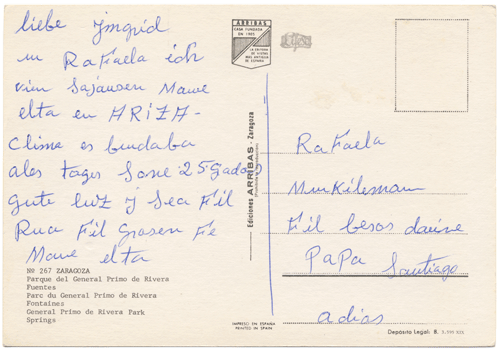 liebe Jmgrid
in Rafaela ich
vin Sajausen Mawe
elta en ARIZA-
Clime es bundaba
ales tages Sone 25 Gados
gute luz y Sea Fil
Rua Fil Grosen Fe
Mawe elta
Nº 267 ZARAGOZA
Parque del General Primo de Rivera
Fuentes
Parc du General Primo de Rivera
Fontaines
General Primo de Rivera Park
Springs
ARRIBAS
CASA FUNDADA
EN 1905
LA EDITORA
DE VISTAS
MAS ANTIGUA
DE ESPAÑA
Ediciones ARRIBAS - Zaragoza
IMPRESO EN ESPAÑA
PRINTED IN SPAIN
Rafaela
Munkileman
Fil besos daine
PaPa Santiago
adios
Depósito Legal: B.